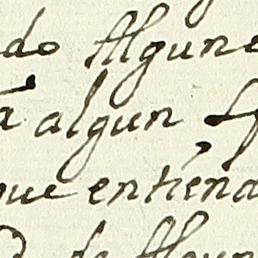 do Algune
a algun
que entiena
de Algun